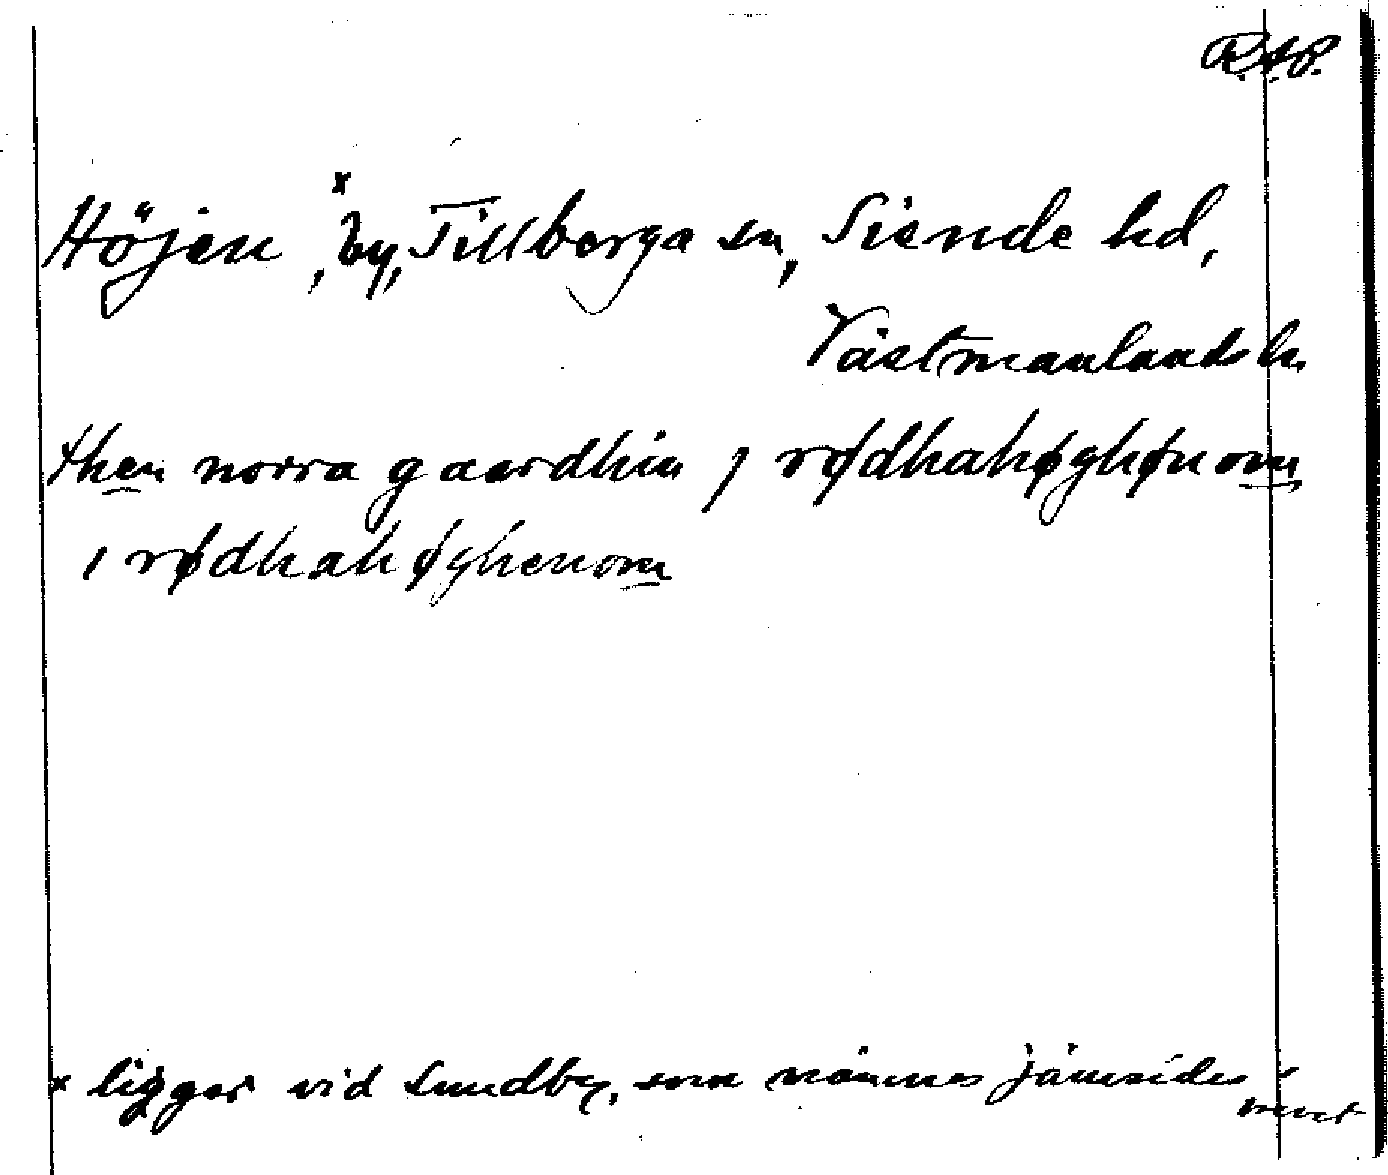 R.A.P.
Höjen, by, Tillberga sn, Siende hd,
Västmanlands l.
then norra gaardhin j rødhahøghønom
i rødhahøghenom
x ligger vid Sundby, som nämnes jämsides i